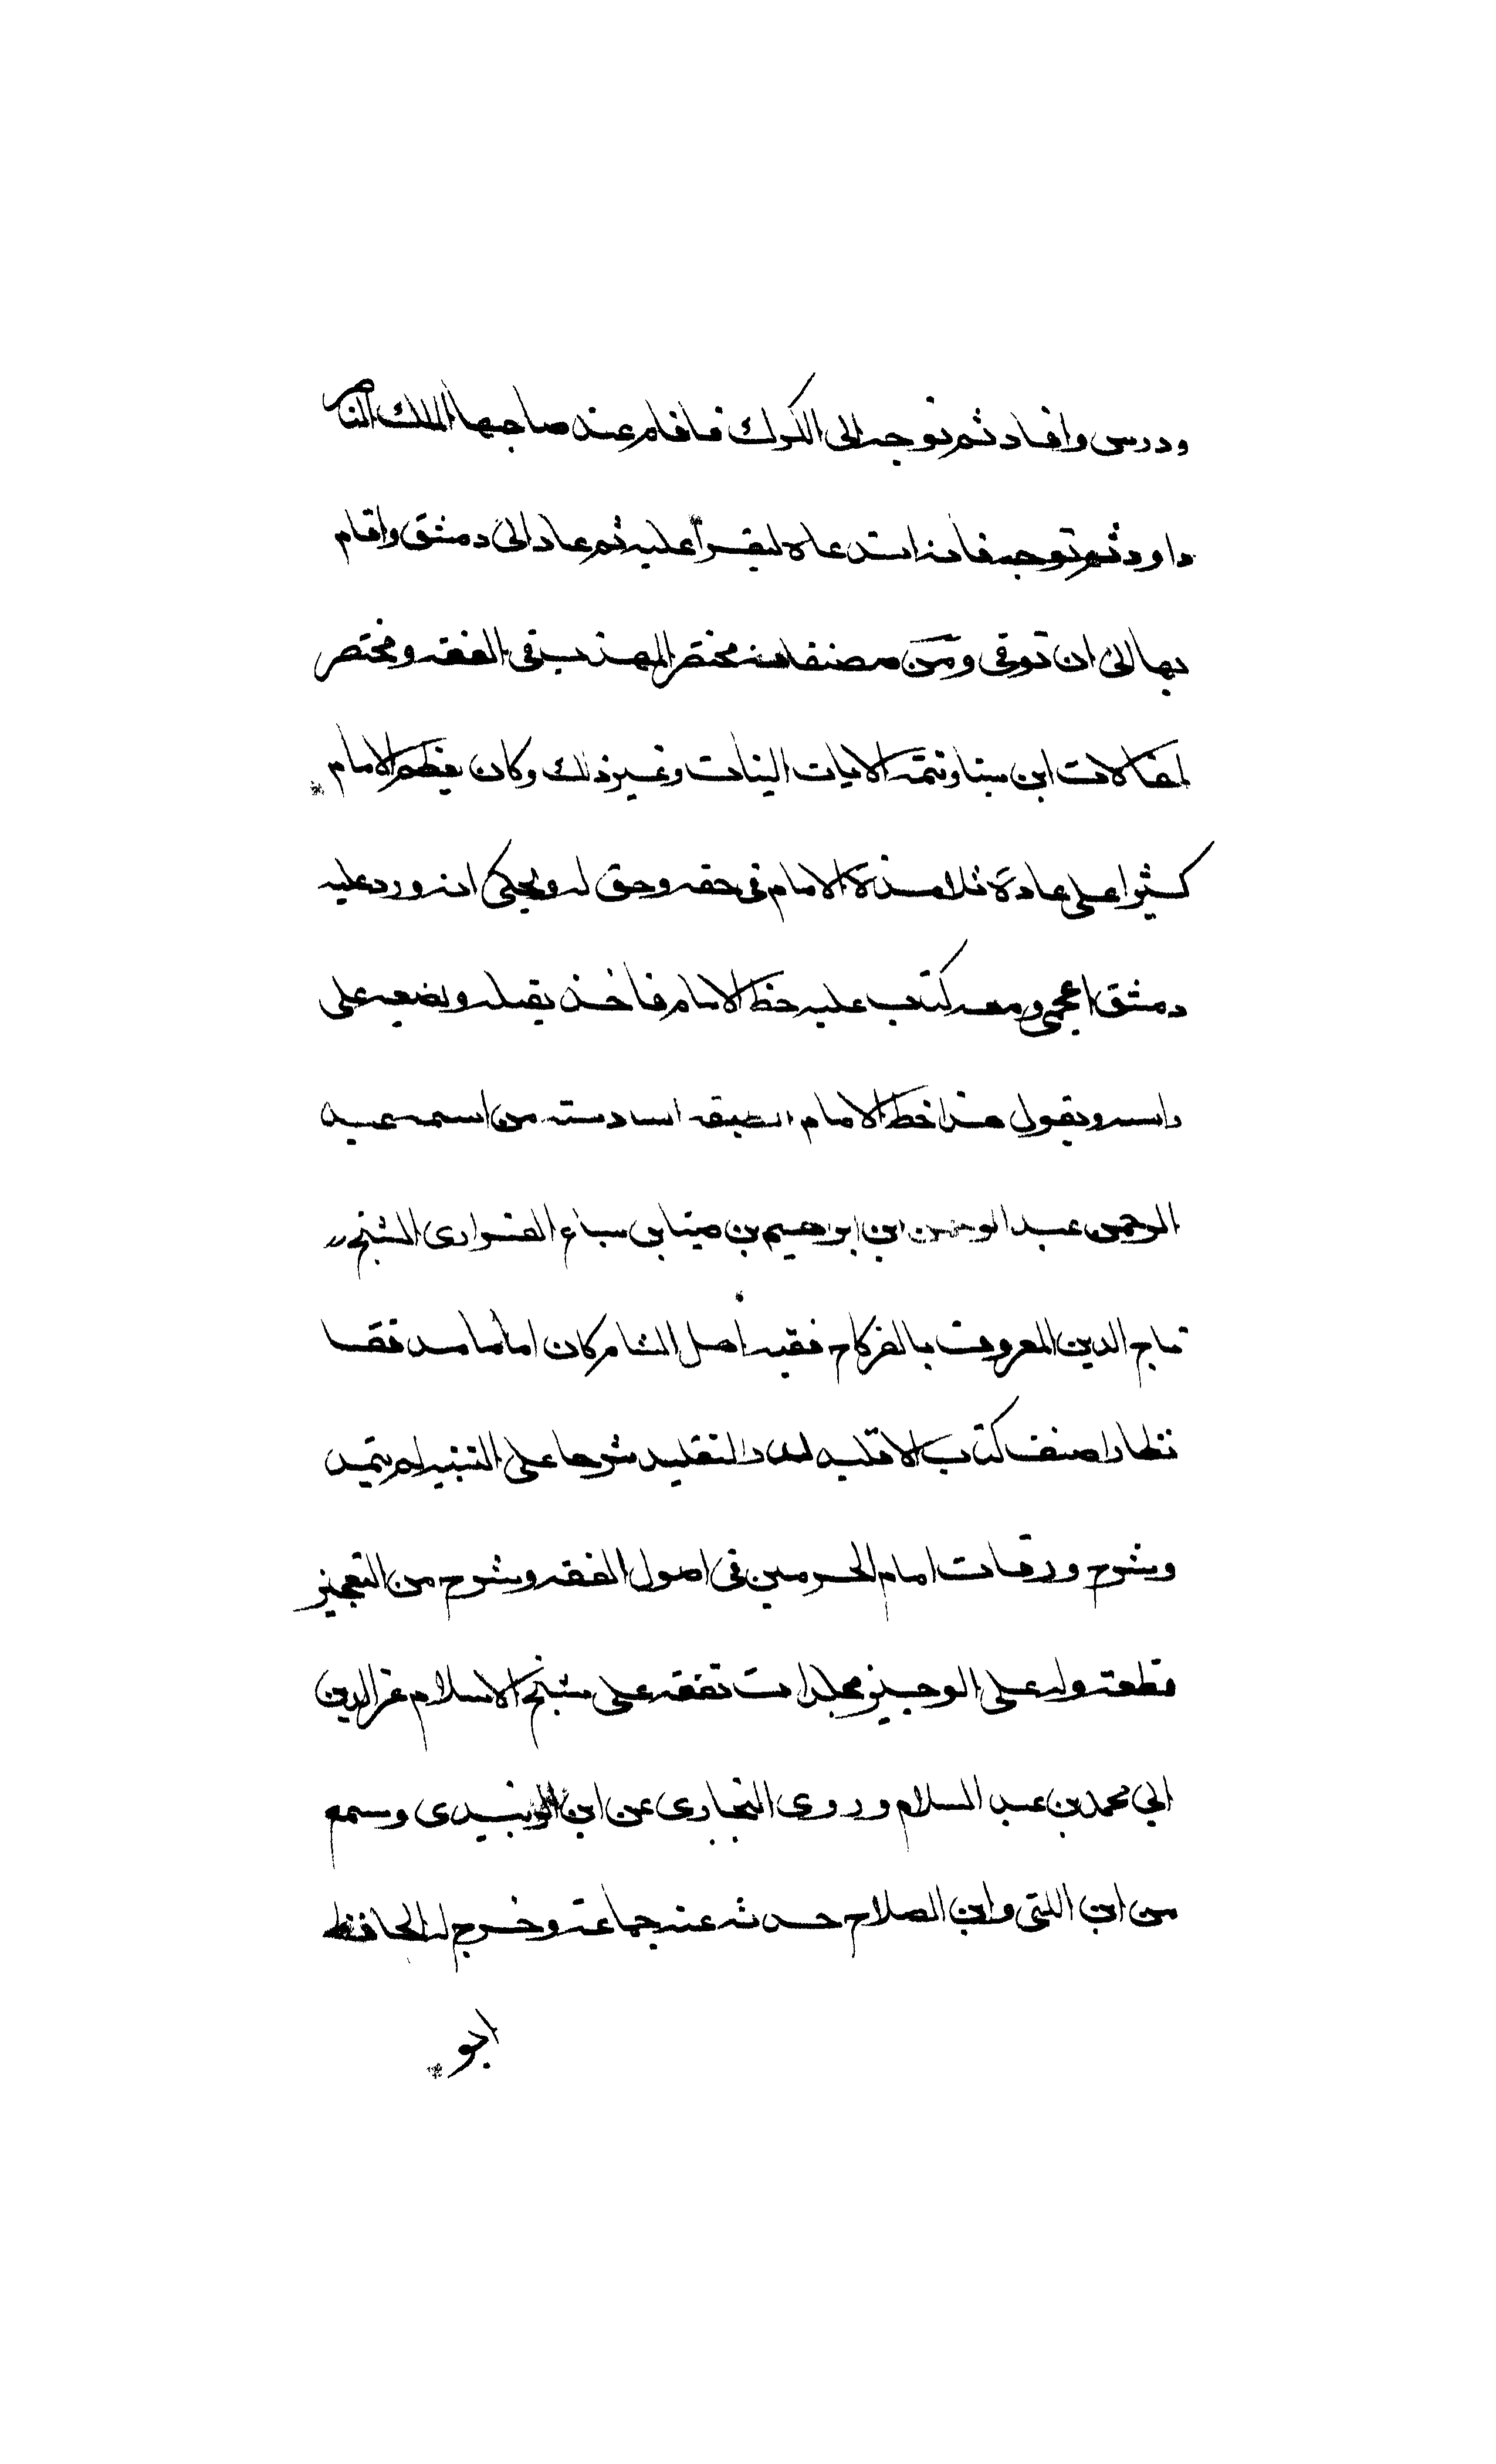 ودرس وافاد ثم توجه الى الكرك فاقام عند صاحبها الملك الناصر
داود ثم توجه فانه استدعاه ليقرأ عليه ثم عاد الى دمشق واقام
بها الى ان توفى ومن مصنفاته مختصر المهذب فى الفقه ومختصر
لمقالات ابن سينا وتتمة الايات البينات وغير ذلك وكان يعظم الامام
كثيرا على عادة تلامذة الامام فى حقه وحق له ويحكى انه ورد عليه
دمشق اعجمى ومعه كتب عليه خط الامام فاخذ يقبله ويضعه على
راسه ويقول هذا خط الامام الطبقه السادسة من اسمه عبد
الرحمن عبد الرحمن ابن ابرهيم بن ضيا بن سباع الفزارى الشيخ
تاج الدين المعروف بالفركاح فقيه أهل الشام كان اماما مدققا
نظارا صنف كتاب الاقليد لدر التقليد شرحا على التنبيه لم يتمه
وشرح ورقات امام الحرمين فى اصول الفقه وشرح من التعجيز
قطعة وله على الوجيز مجلدات تفقه على شيخ الاسلام عز الدين
ابي محمد بن عبد السلام وروى البخارى عن ابن الزبيدى وسمع
من ابن اللتى وابن الصلاح حدث عنه جماعة وخرج له الحافظ
ابو